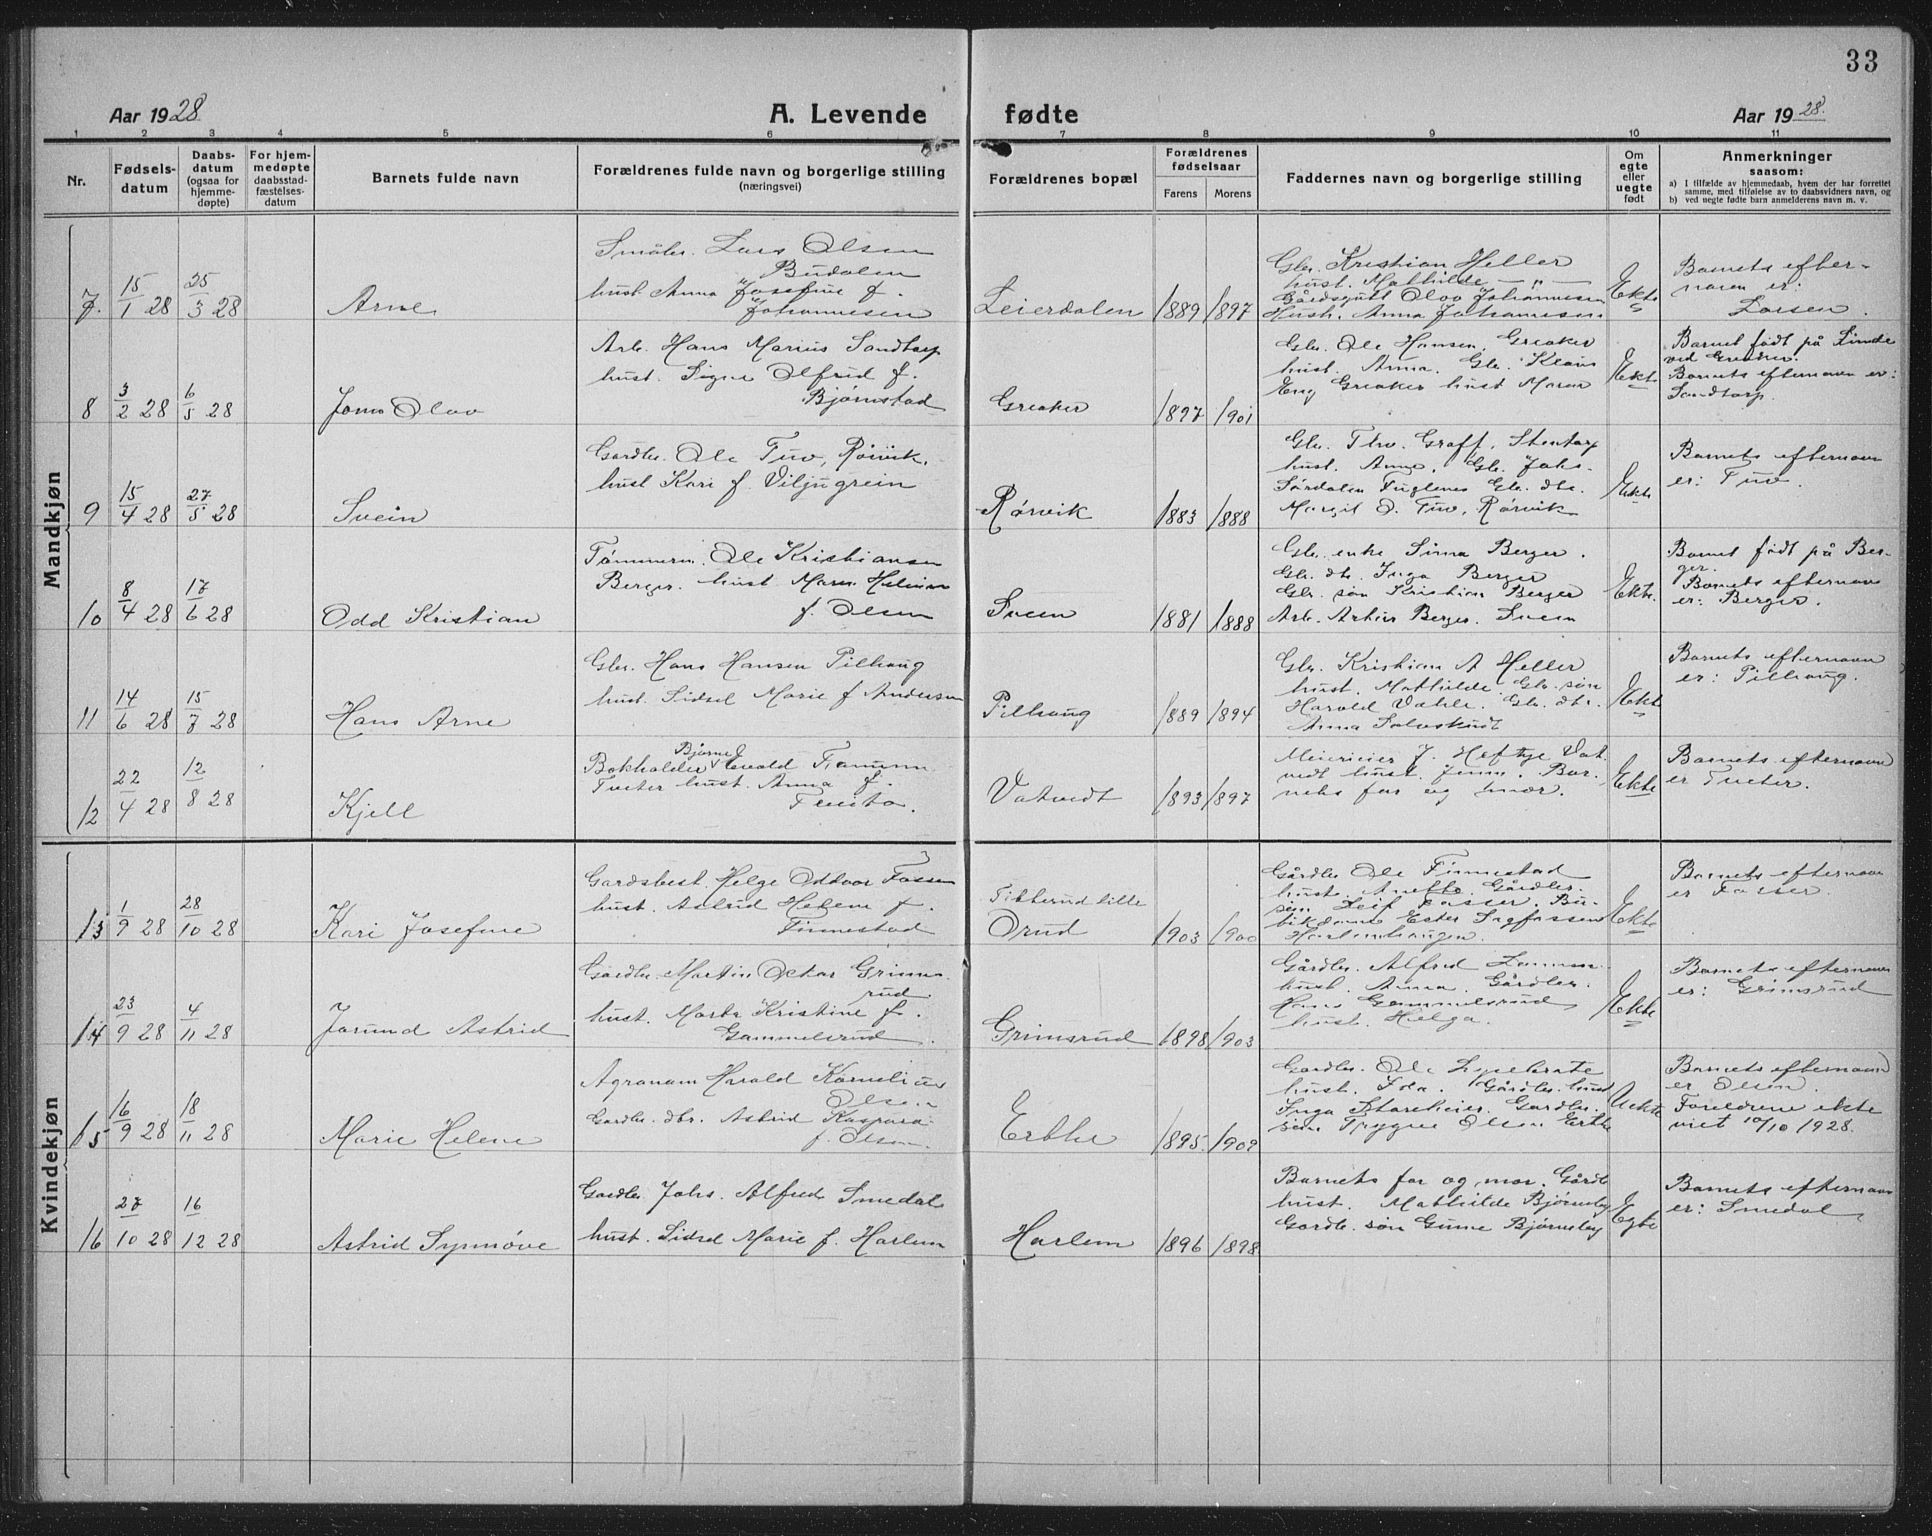 33
Aar 1928
A. Levende fødte
Aar 1928.
1 2 3 4 5 6 7 8 9 10 11
Nr.
Fødsels-
datum
Daabs-
datum
(ogsaa for
hjemme-
døpte)
For hjem-
medøpte
daabsstad-
fæstelses-
datum
Barnets fulde navn
Forældrenes fulde navn og borgerlige stilling
(næringsvei)
Forældrenes bopæl
Forældrenes
fødselsaar
Farens Morens
Faddernes navn og borgerlige stilling
Om
egte
eller
uegte
født
Anmerkninger
saasom:
a) I tilfælde av hjemmedaab, hvem der har forrettet
samme, med tilføielse av to daabsvidners navn, og
b) ved uegte fødte barn anmelderens navn m. v.
Mandkjøn
7. 15/1 28 25/3 28
Arne
Småbr. Lars Olsen
Budalen
hust. Anna Josefine f.
Johannesen
Leierdalen 1889 1897
Gbr. Kristian Heller
hust. Mathilde — " —
Gårdsgutt Olav Johannesen
Hush. Anna Johannesen.
Ekte
Barnets efter-
navn er:
Larsen.
8 3/2 28 6/5 28
Jens Olav
Arb. Hans Marius Sandtorp
hust. Signe Alfrid f.
Bjørnstad
Greaker 1897 1901
Gbr. Ole Hansen, Greaker
hust. Anna. Gbr. Klaus
Eng Greaker hust Maren
Ekte
Barnet født på Linde
ved Greaker.
Barnets efternavn er:
Sandtorp.
9 15/4 28 27/5 28
Svein
Gardbr. Ole Tuv, Rørvik,
hust Kari f. Viljugrein
Rørvik 1883 1888
Gbr. Thv. Graff, Stentorp
hust. Anne. Gbr. Johs.
Sørdalen Fuglenes Gbr. dtr.
Margit O. Tuv, Rørvik
Ekte
Barnets efternavn
er: Tuv.
10 8/4 28 17/6 28
Odd Kristian
Tømmerm. Ole Kristiansen
Berger. hust Maren Helmine
f. Olsen
Sveen 1881 1888
Gbr. enke Sina Berger.
Gbr. dtr. Inga Berger
Gbr. søn Kristian Berger
Arb. Arthur Berger. Sveen
Ekte.
Barnet født på Ber-
ger.
Barnets efternavn
er: Berger.
11 14/6 28 15/7 28
Hans Arne
Gbr. Hans Hansen Pilhaug
hust. Sidsel Marie f Andersen
Pilhaug 1889 1894
Gbr. Kristian A Heller
hust. Mathilde. Gbr. søn
Harald Vahle. Gbr. dtr.
Anna
Ekte
Barnets efternavn
er: Pilhaug.
12 22/4 28 12/8 28
Kjell
Bjarne
Bokholder Evald
Tveter hust. Anna f.
Vatvedt 1893 1897
Meierieier J. Heftye Vat
vedt hust. Jenny. Bar-
nets far og mor.
Ekte
Barnets efternavn
er Tveter.
Kvindekjøn
13 1/9 28 28/10 28
Kari Josefine
Gardsbest. Helge Oddvar Fosser
hust. Astrid Helene f.
Finnestad
lille
Orud 1903 1900
Gårdbr. Ole Finnestad
hust. Anette Gårdbr.
søn Leif Fosser. Bu-
tikdame Ester
Ekte
Barnets efternavn
er Fosser.
14 23/9 28 4/11 28
Jorund Astrid
Gardbr. Martin Oskar Grims-
rud
hust. Marta Kristine f.
Gammelsrud.
Grimsrud 1898 1903
Gårdbr. Alfred
hust. Anna. Gårdbr.
Hans Gammelsrud
hust. Helga.
Ekte
Barnets efternavn
er: Grimsrud
15 16/9 28 18/11 28
Marie Helene
Agronom Harald Kornelius
Olsen
Gardbr. dtr. Astrid Kaspara
f. Olsen.
Ertke 1895. 1902
Gardbr. Ole
hust. Ida. Gårdbr. hust
Inga Gardbr.
søn Trygve Olsen Ertke
Uekte
Barnets efternavn
er Olsen.
Foreldrene ekte
viet 10/10 1928.
16 27/10 28 16/12 28
Astrid Synnøve
Gardbr. Johs. Alfred Smedal
hust. Sidsel Marie f. Harlem
Harlem 1896 1898
Barnets far og mor. Gårdb
hust. Mathilde Bjørneby
Gardb. søn Gunne Bjørneby
Egte
Barnets efternavn
er: Smedal